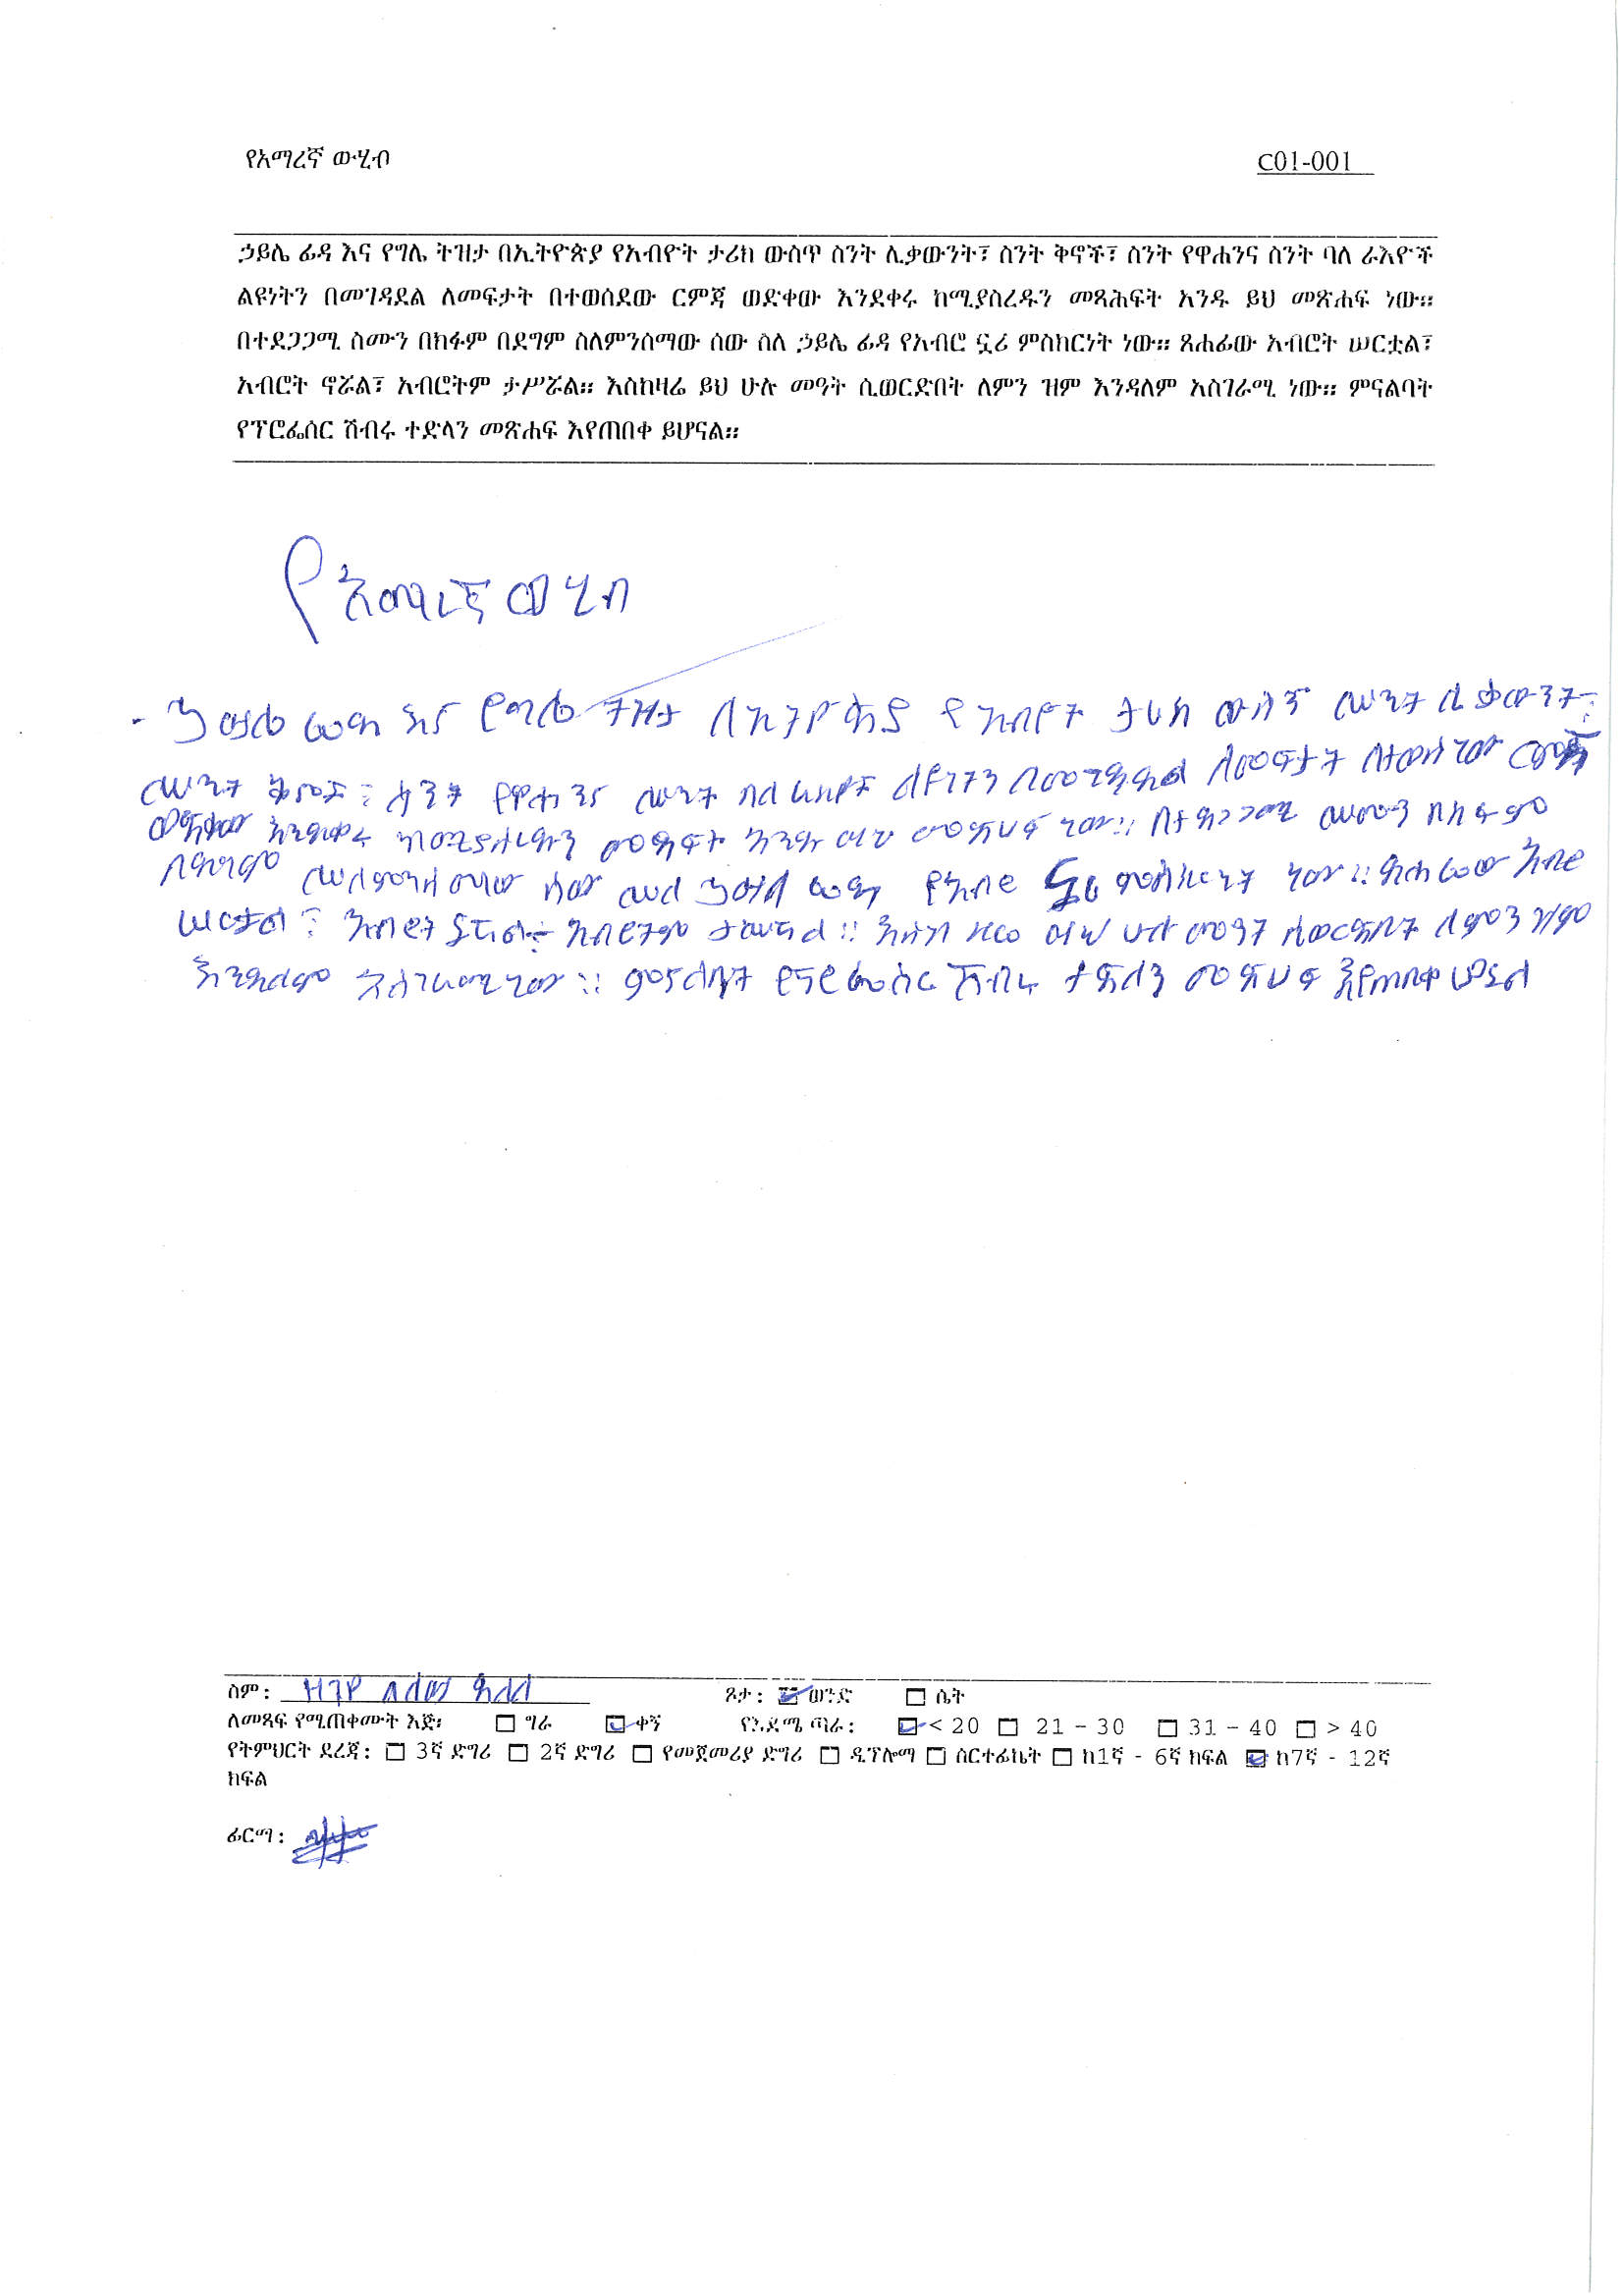 የአማረኛ ውሂብ
C01-001
ኃይሌ ፊዳ እና የግሌ ትዝታ በኢትዮጵያ የአብዮት ታሪክ ውስጥ ስንት ሊቃውንት፣ ስንት ቅኖች፣ ስንት የዋሐንና ስንት ባለ ራእዮች
ልዩነትን በመገዳደል ለመፍታት በተወሰደው ርምጃ ወድቀው እንደቀሩ ከሚያስረዱን መጻሕፍት አንዱ ይህ መጽሐፍ ነው።
በተደጋጋሚ ስሙን በክፉም በደግም ስለምንሰማው ሰው ስለ ኃይሌ ፊዳ የአብሮ ኗሪ ምስክርነት ነው። ጸሐፊው አብሮት ሠርቷል፣
አብሮት ኖሯል፣ አብሮትም ታሥሯል። እስከዛሬ ይህ ሁሉ መዓት ሲወርድበት ለምን ዝም እንዳለም አስገራሚ ነው። ምናልባት
የፕሮፌሰር ሽብሩ ተድላን መጽሐፍ እየጠበቀ ይሆናል።
የአማረኛ ውሂብ
- ኃይሌ ፊዳ እና የግሌ ትዝታ በኢትዮጵያ የአብዮት ታሪክ ውስጥ ሡንት ሊቃውንት፣
ሡንት ቅኖች፣ ስንት የዋሐንና ሡንት ባለ ራእዮች ልዩነትን በመገዳደል ለመፍታት በተወሰደው ርምጃ
ወድቀው እንደቀሩ ከሚያስረዱን መጻፍት አንዱ ይህ መጽሀፍ ነው። በተደጋጋሚ ሡሙን በክፉም
በደግም ሡለምንሰማው ሰው ሡለ ኃይሌ ፊዳ የአብሮ ኗሪ ምስክርነት ነው። ጸሐፊው አብሮ
ሠርቷል፣ አብሮት ኗሯል፣ አብሮትም ታሠሯል። እስከ ዛሬ ይህ ሁሉ መዓት ሲወርድበት ለምን ዝም
እንዳለም አስገራሚ ነው። ምናልባት የፕሮፌሰር ሽብሩ ተድላን መጽሀፍ እየጠበቀ ይሆናል
ስም:
ጾታ: ወንድ ሴት
ለመጻፍ የሚጠቀሙት እጅ፡ ግራ ቀኝ የእድሜ ጣራ: < 20 21 - 30 31 - 40 > 40
የትምህርት ደረጃ: 3ኛ ድግሪ 2ኛ ድግሪ የመጀመሪያ ድግሪ ዲፕሎማ ሰርተፊኬት ከ1ኛ - 6ኛ ክፍል ከ7ኛ - 12ኛ
ክፍል
ፊርማ: